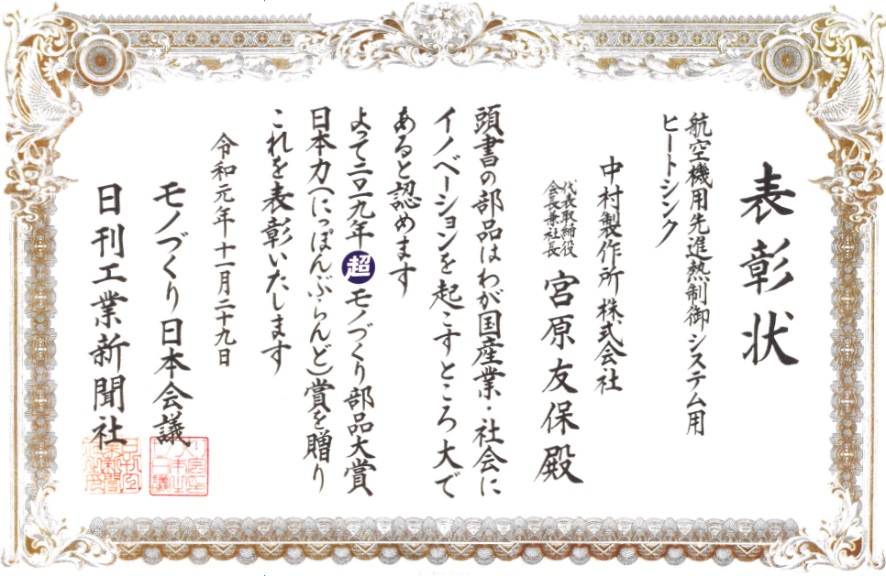 表彰状
航空機用先進熱制御システム用
ヒートシンク
中村製作所株式会社
代表取締役
会長兼社長
宮原友保殿
頭書の部品はわが国産業・社会に
イノベーションを起こすところ大で
あると認めます
よって二〇一九年超モノづくり部品大賞
日本力(にっぽんぶらんど)賞を贈り
これを表彰いたします
令和元年十一月二十九日
モノづくり日本会議
日刊工業新聞社